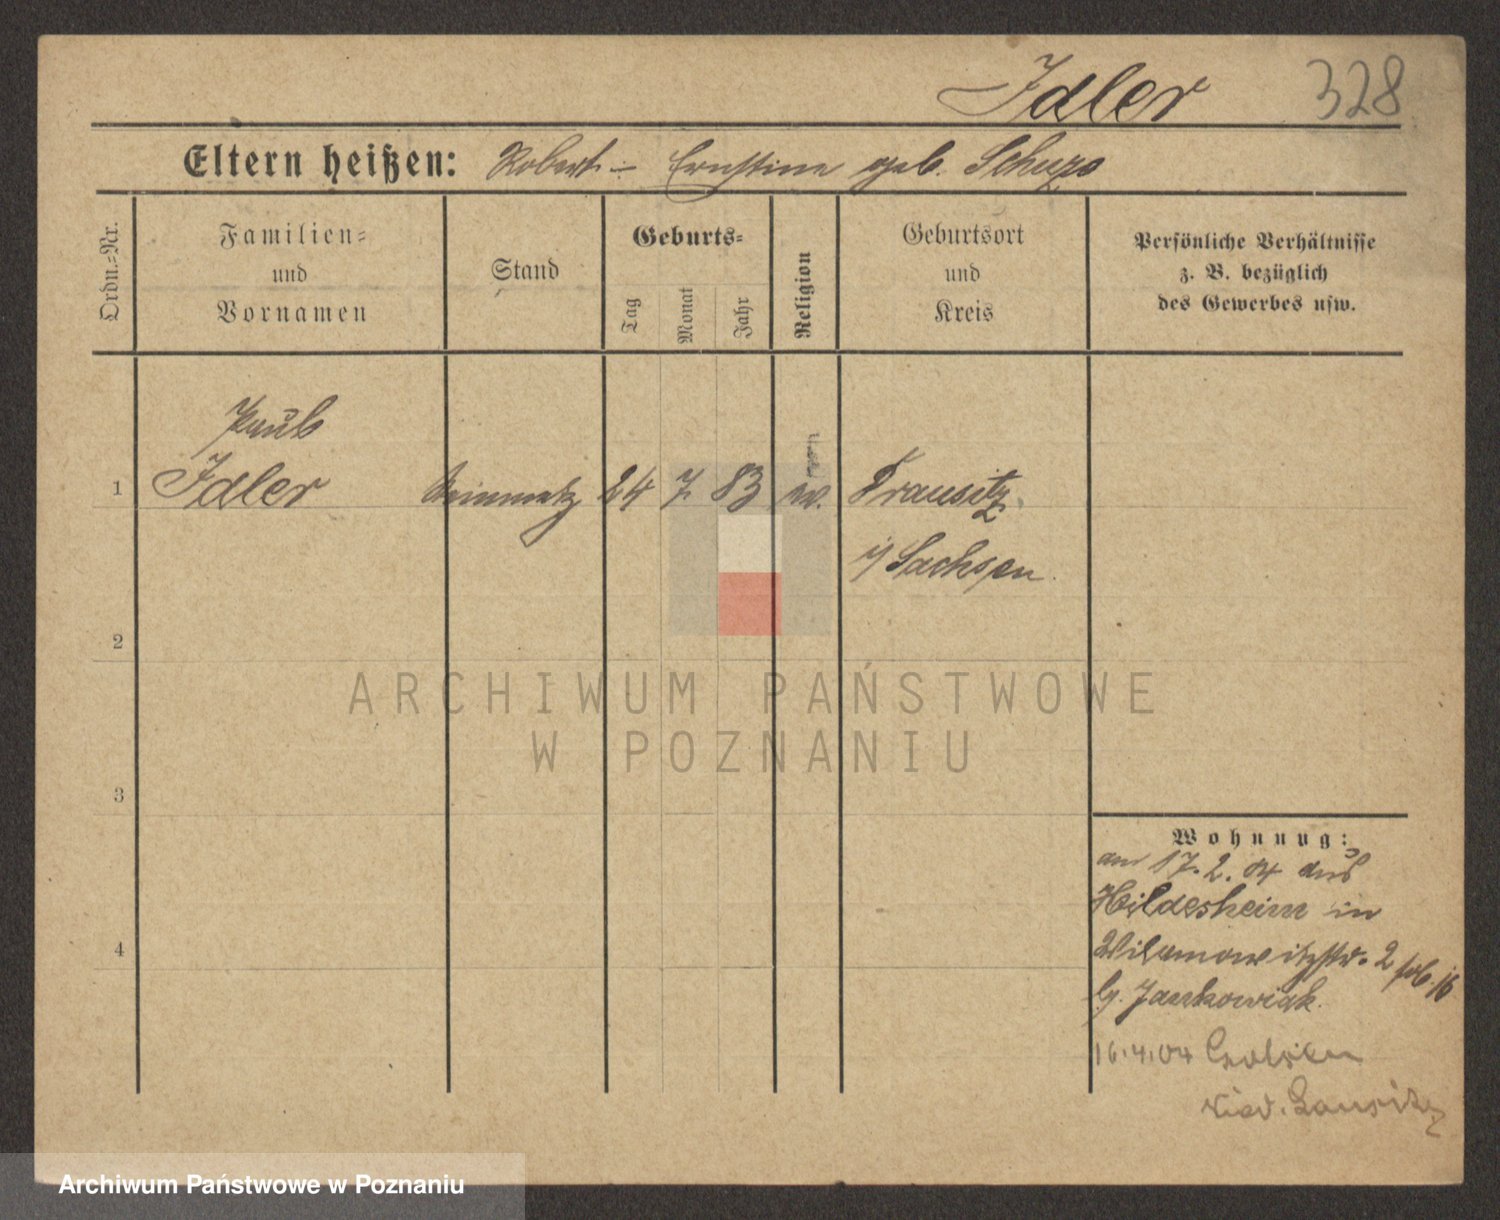 Idler 328
Eltern heißen: Robert – Ernstine geb.
Ordn.-Nr.
Familien- und Vornamen
Stand
Geburts-
Tag
Monat
Jahr
Religion
Geburtsort und Kreis
Persönliche Verhältnisse
z. B. bezüglich
des Gewerbes usw.
Paul
1 Idler Steinmetz 24 7 83 ev. Frausitz
i/ Sachsen
2
3
4
Wohnung:
am 17.2.04 aus
Hildesheim in
Wilamowitzstr. 2
Jankowiak.
16.4.04
ARCHIWUM PAŃSTWOWE
W POZNANIU
Archiwum Państwowe w Poznaniu